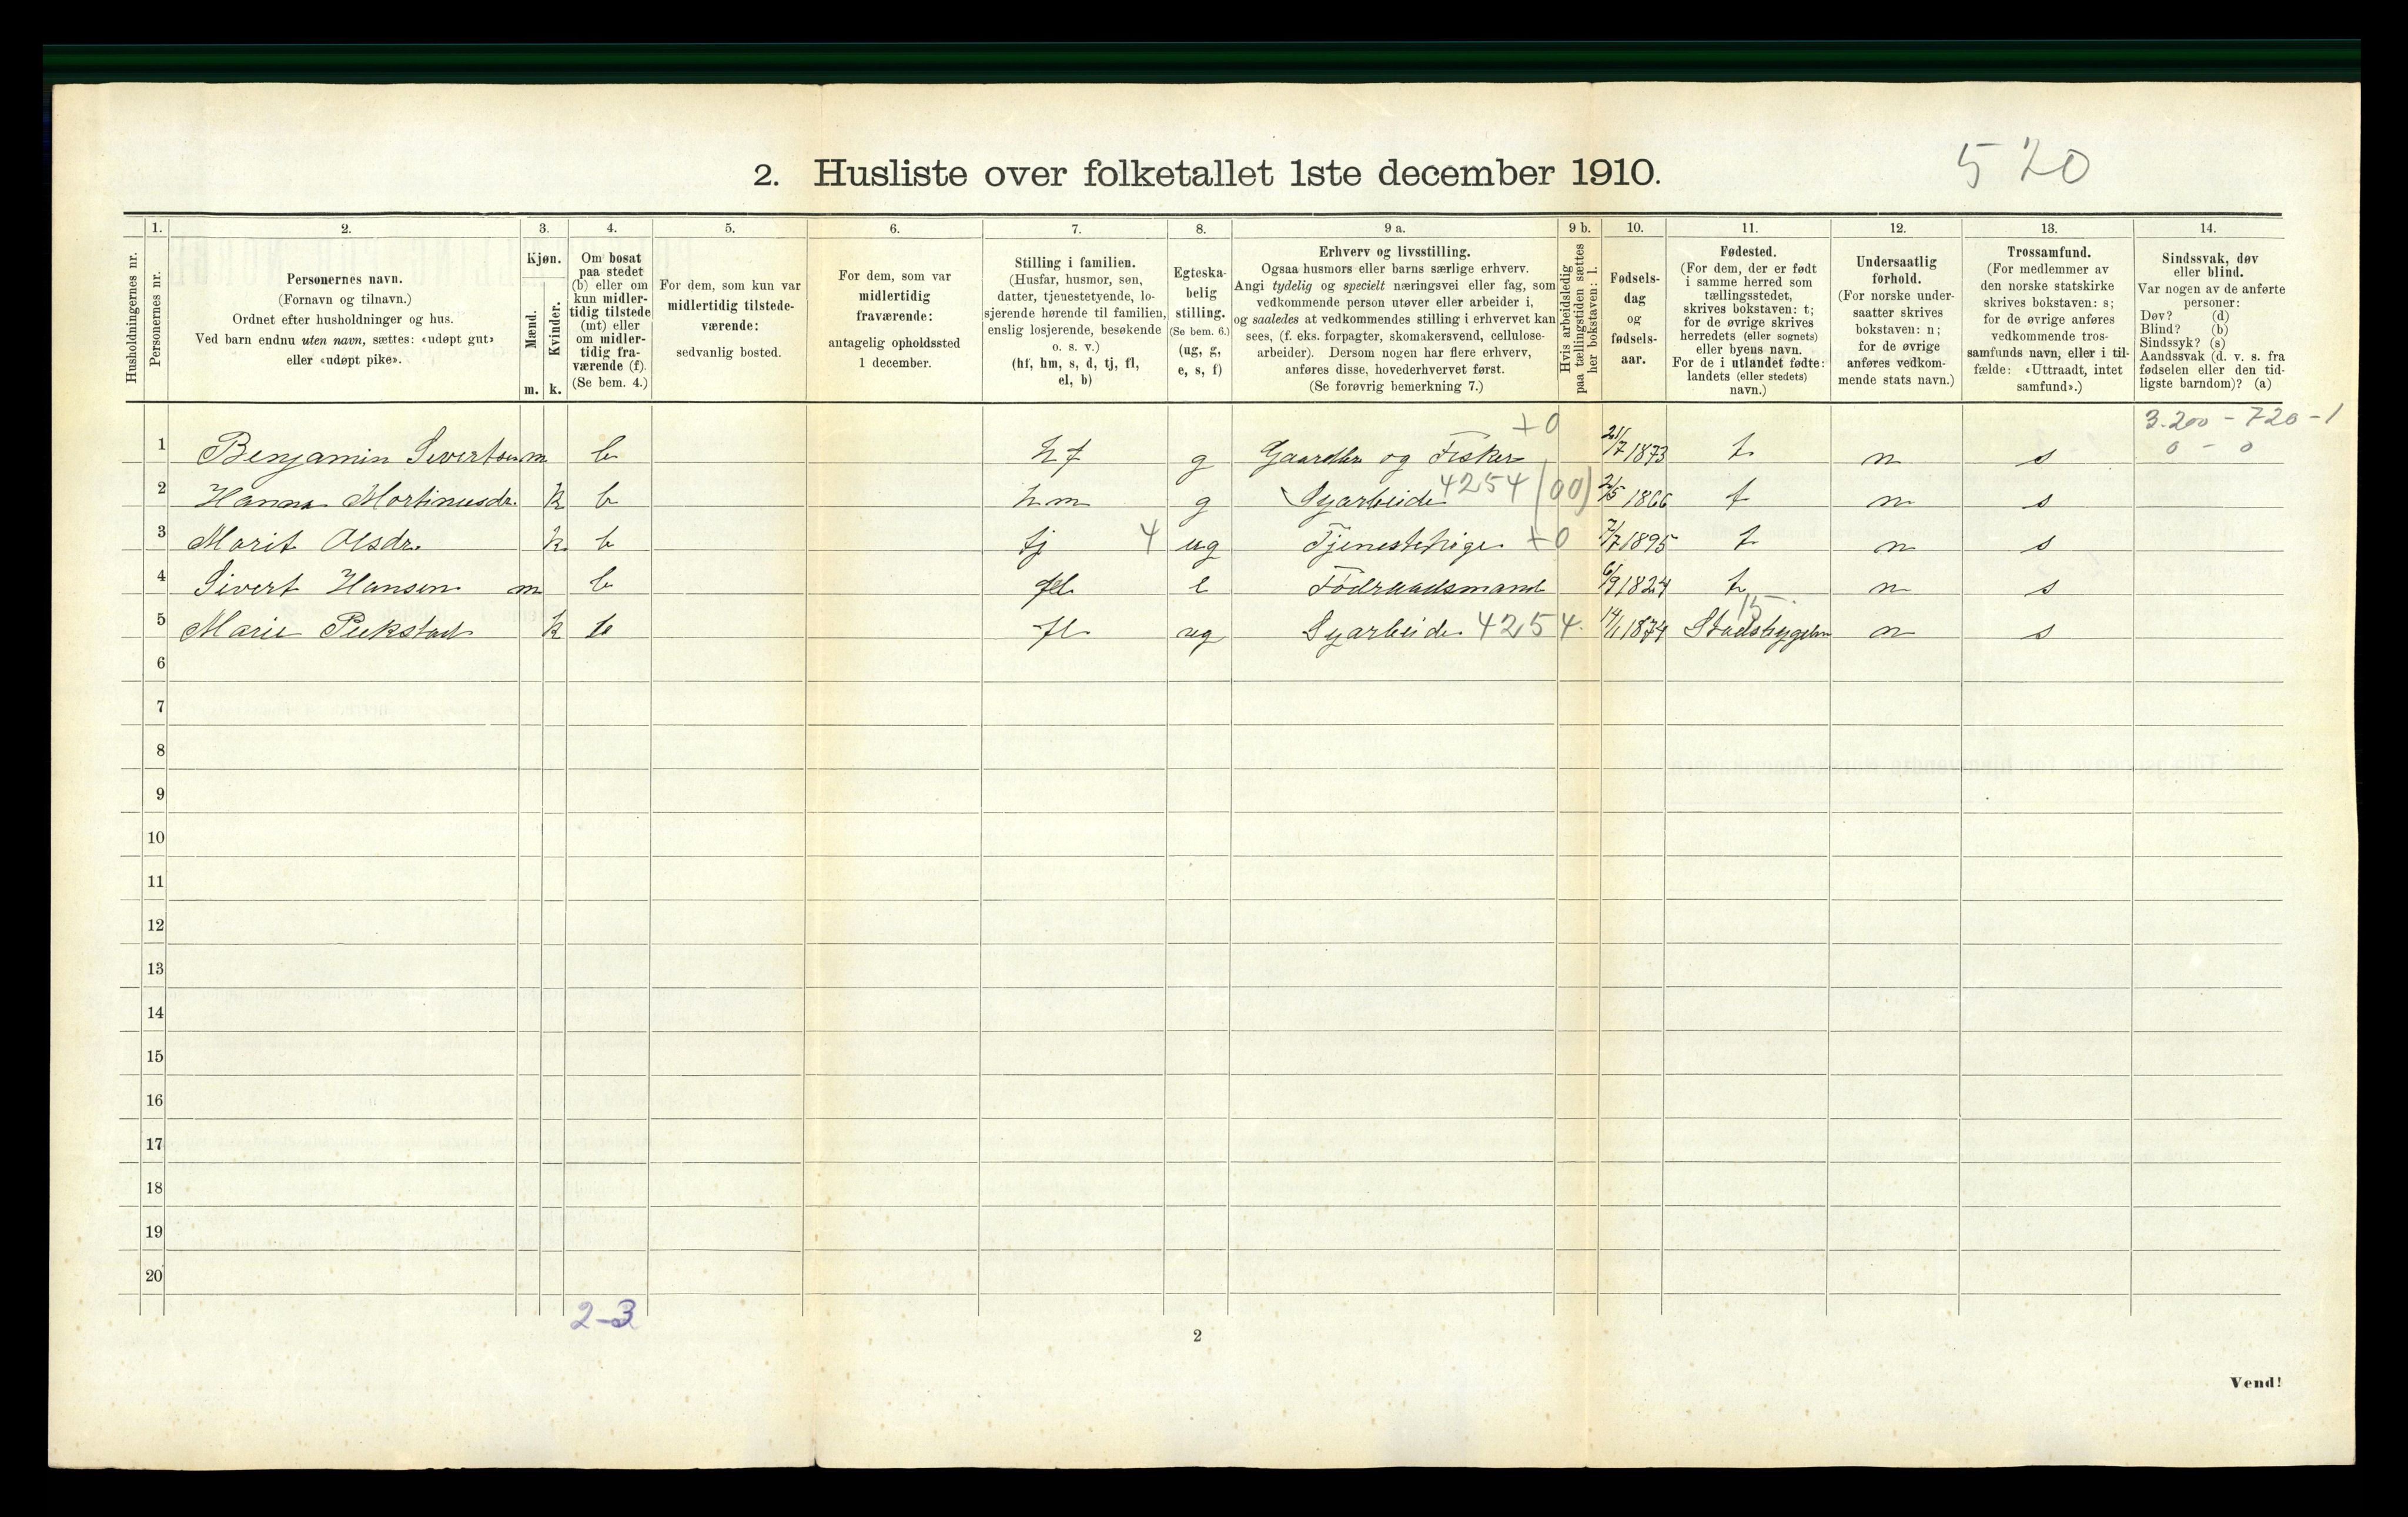 520
2. Husliste over folketallet 1ste december 1910.
Husholdningernes nr.
1. Personernes nr.
2. Personernes navn.
(Fornavn og tilnavn.)
Ordnet efter husholdninger og hus.
Ved barn endnu uten navn, sættes: «udøpt gut»
eller «udøpt pike».
3. Kjøn.
Mænd. m.
Kvinder. k.
4. Om bosat
paa stedet
(b) eller om
kun midler-
tidig tilstede
(mt) eller
om midler-
tidig fra-
værende (f).
(Se bem. 4.)
5. For dem, som kun var
midlertidig tilstede-
værende:
sedvanlig bosted.
6. For dem, som var
midlertidig
fraværende:
antagelig opholdssted
1 december.
7. Stilling i familien.
(Husfar, husmor, søn,
datter, tjenestetyende, lo-
sjerende hørende til familien,
enslig losjerende, besøkende
o. s. v.)
(hf, hm, s, d, tj, fl,
el, b)
8. Egteska-
belig
stilling.
(Se bem. 6.)
(ug, g,
e, s, f)
9 a. Erhverv og livsstilling.
Ogsaa husmors eller barns særlige erhverv.
Angi tydelig og specielt næringsvei eller fag, som
vedkommende person utøver eller arbeider i,
og saaledes at vedkommendes stilling i erhvervet kan
sees, (f. eks. forpagter, skomakersvend, cellulose-
arbeider). Dersom nogen har flere erhverv,
anføres disse, hovederhvervet først.
(Se forøvrig bemerkning 7.)
9 b. Hvis arbeidsledig
paa tællingstiden sættes
her bokstaven: l.
10. Fødsels-
dag
og
fødsels-
aar.
11. Fødested.
(For dem, der er født
i samme herred som
tællingsstedet,
skrives bokstaven: t;
for de øvrige skrives
herredets (eller sognets)
eller byens navn.
For de i utlandet fødte:
landets (eller stedets)
navn.)
12. Undersaatlig
forhold.
(For norske under-
saatter skrives
bokstaven: n;
for de øvrige
anføres vedkom-
mende stats navn.)
13. Trossamfund.
(For medlemmer av
den norske statskirke
skrives bokstaven: s;
for de øvrige anføres
vedkommende tros-
samfunds navn, eller i til-
fælde: «Uttraadt, intet
samfund».)
14. Sindssvak, døv
eller blind.
Var nogen av de anførte
personer:
Døv? (d)
Blind? (b)
Sindssyk? (s)
Aandssvak (d. v. s. fra
fødselen eller den tid-
ligste barndom)? (a)
+0 3.200 - 720 - 1
0 - 0
1 Benjamin Sivertsen m b hf g Gaardbr og Fisker 21/7 1873 t n s
2 Hanna Martinusdr. k b hm g Syarbeide 4254 (00) 2/5 1866 t n s
3 Marit Olsdr. k b tj 4 ug Tjenestepige +0 7/7 1895 t n s
4 Sivert Hansen m b fl e Födraadsmand 6/9 1824 t n s
15
5 Marie k b fl ug Syarbeide 4254 14/1 1874 Stadsbygden n s
6
7
8
9
10
11
12
13
14
15
16
17
18
19
20
2-3
2
Vend!